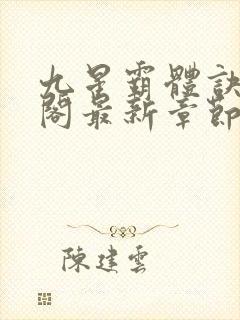 九星霸體訣
閣最新章節
陳建雲